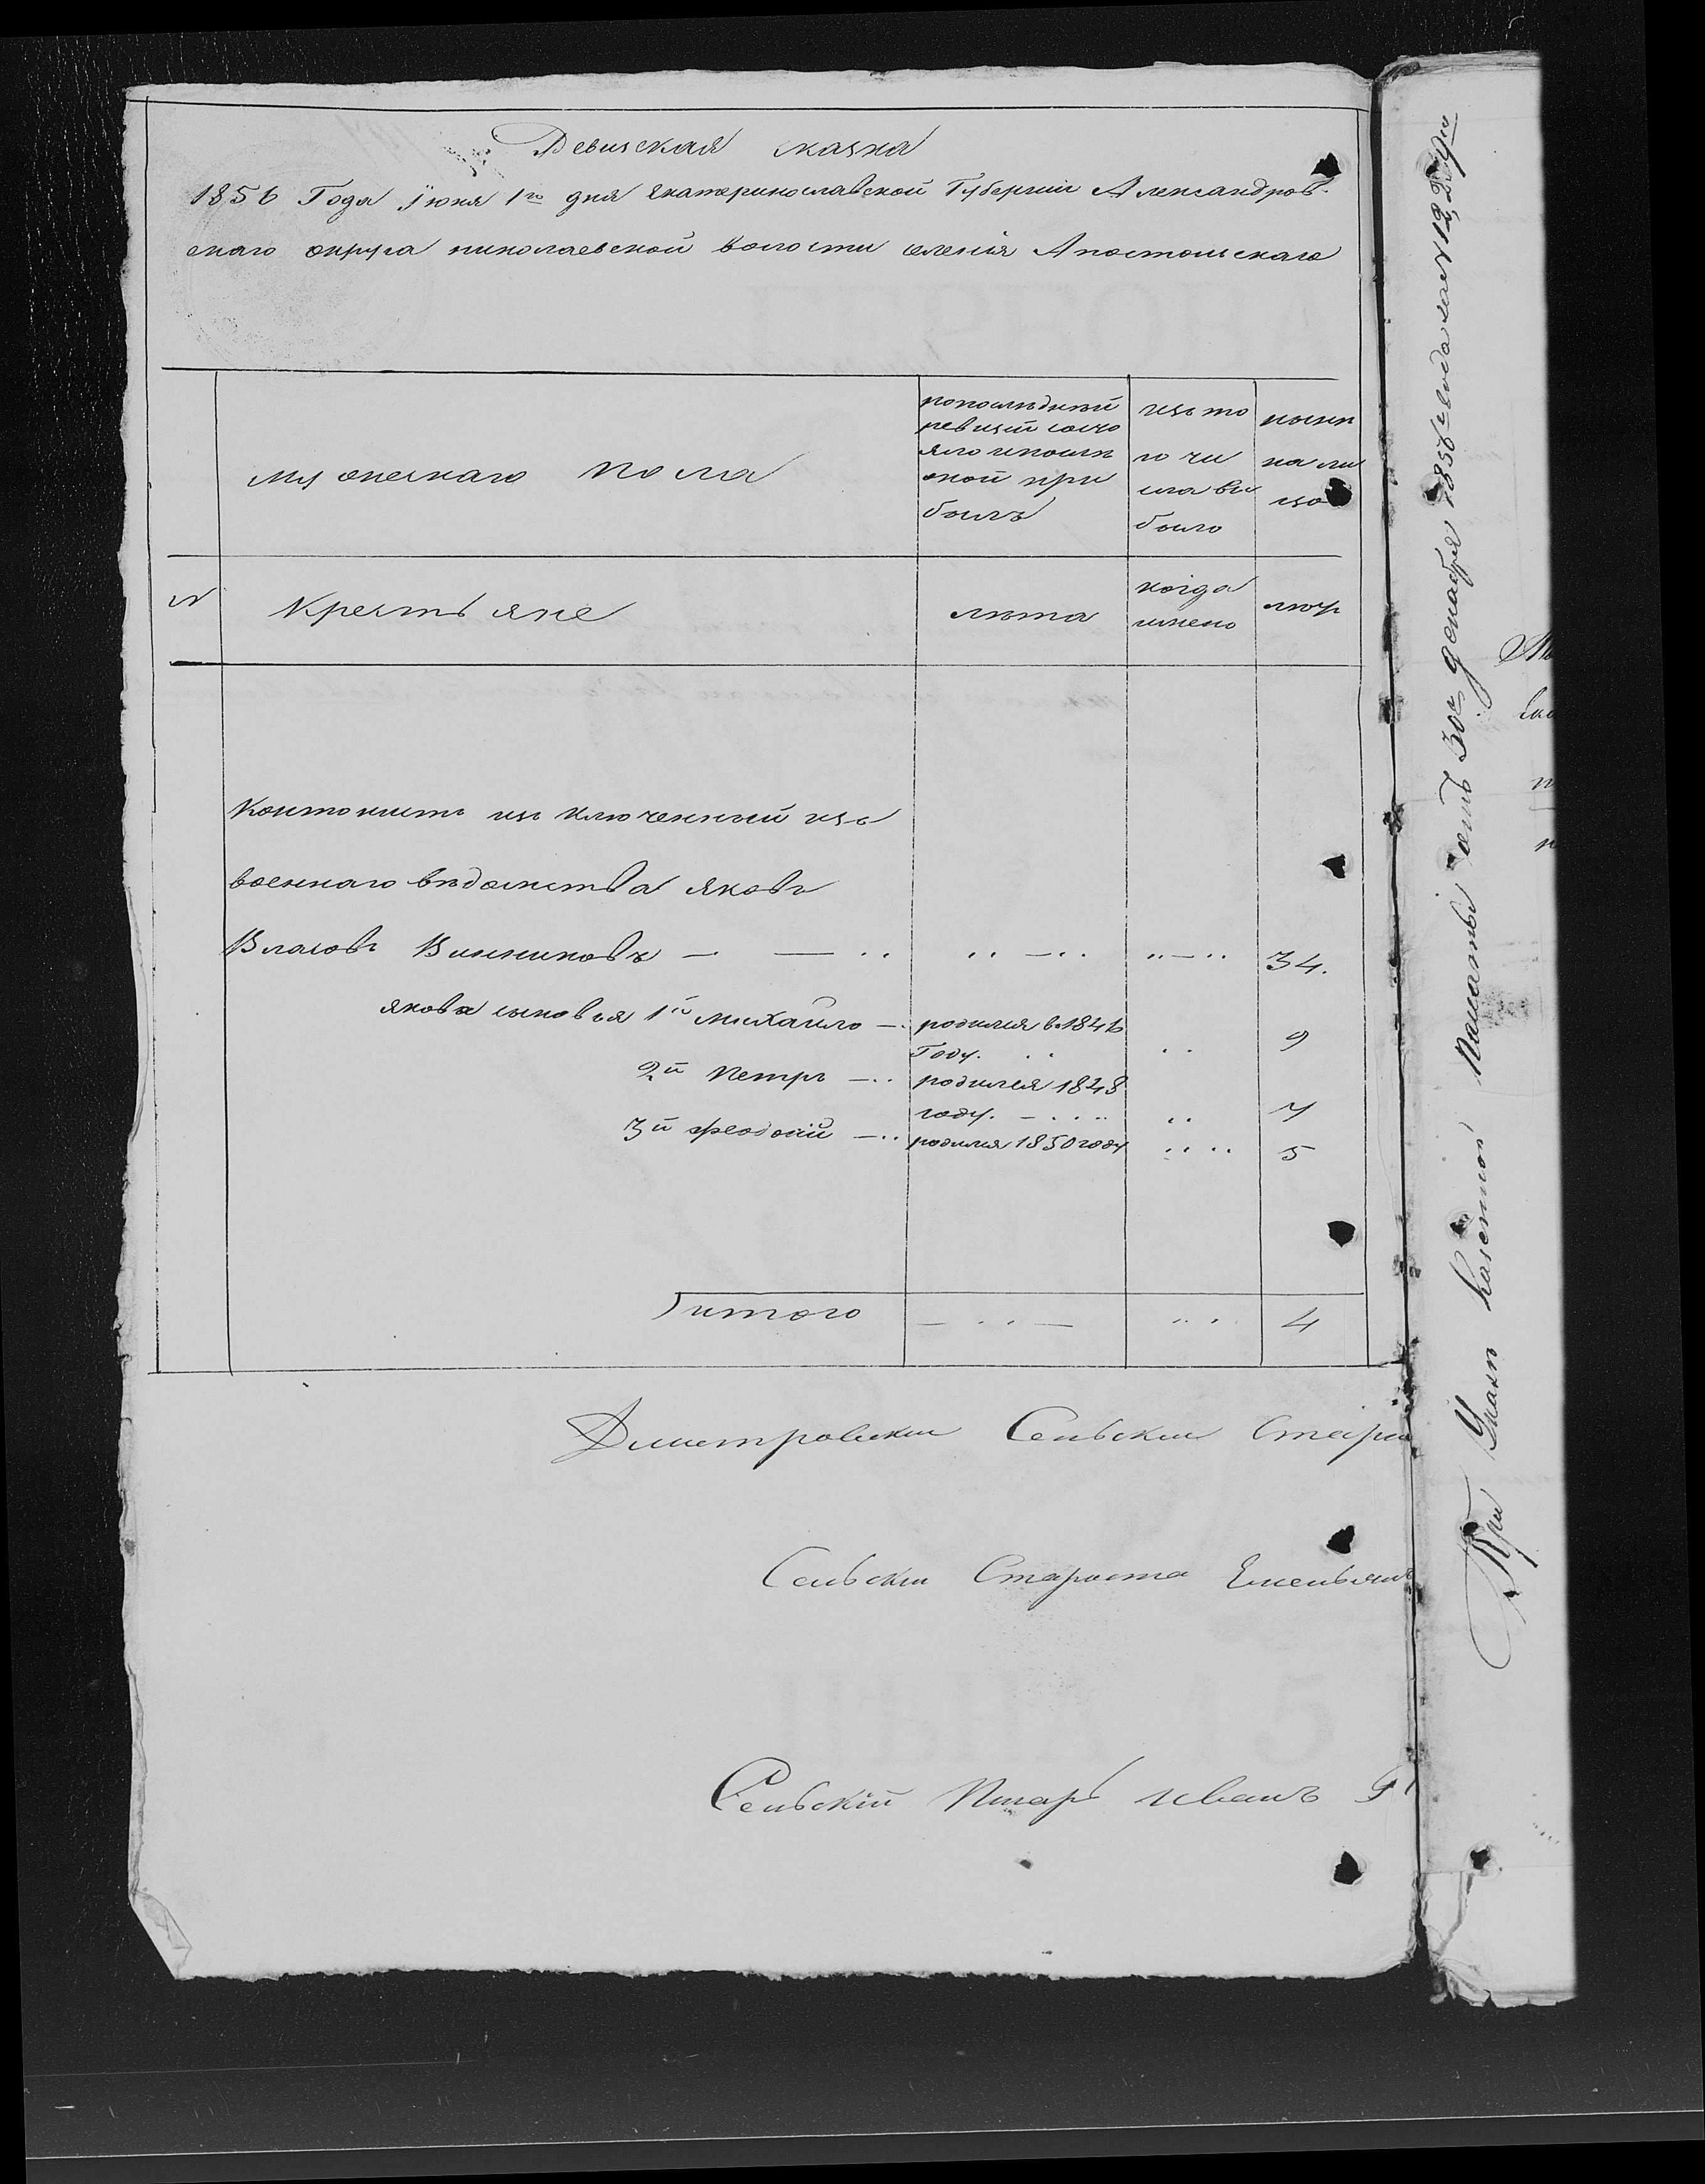 Девизская сказка
1856 Года Июня 1го дня Екатеринославской Губернии Александров-
скаго округа николаевской волости селенія Апостольскаго
мужескаго пола
попоследней
ревизіи состо
яло ипосли
оной при
былъ
изъ то
го чи
сла вы
было
ныне
на ли
цо
N
Крестьяне
лета
когда
имено
Контонистъ изключенный изъ
военнаго ведомства яковъ
Власовъ Винниковъ — — ·· ·· — ·· ·· — ·· 34.
якова сыновья 1й михайло — родился в 1846
Году. ·· ·· 9
2й Петръ — ·· родился 1848
году. — ·· ·· 7
3й феодосій — ·· родился 1850 году ·· ·· 5
итого — ·· — ·· 4
Дмитровски Сельски Старш
Сельски Староста Емельянъ
Сельскій Писарь иванъ
При Указе Казенной Палаты отъ 30го декабря 1856го года за N